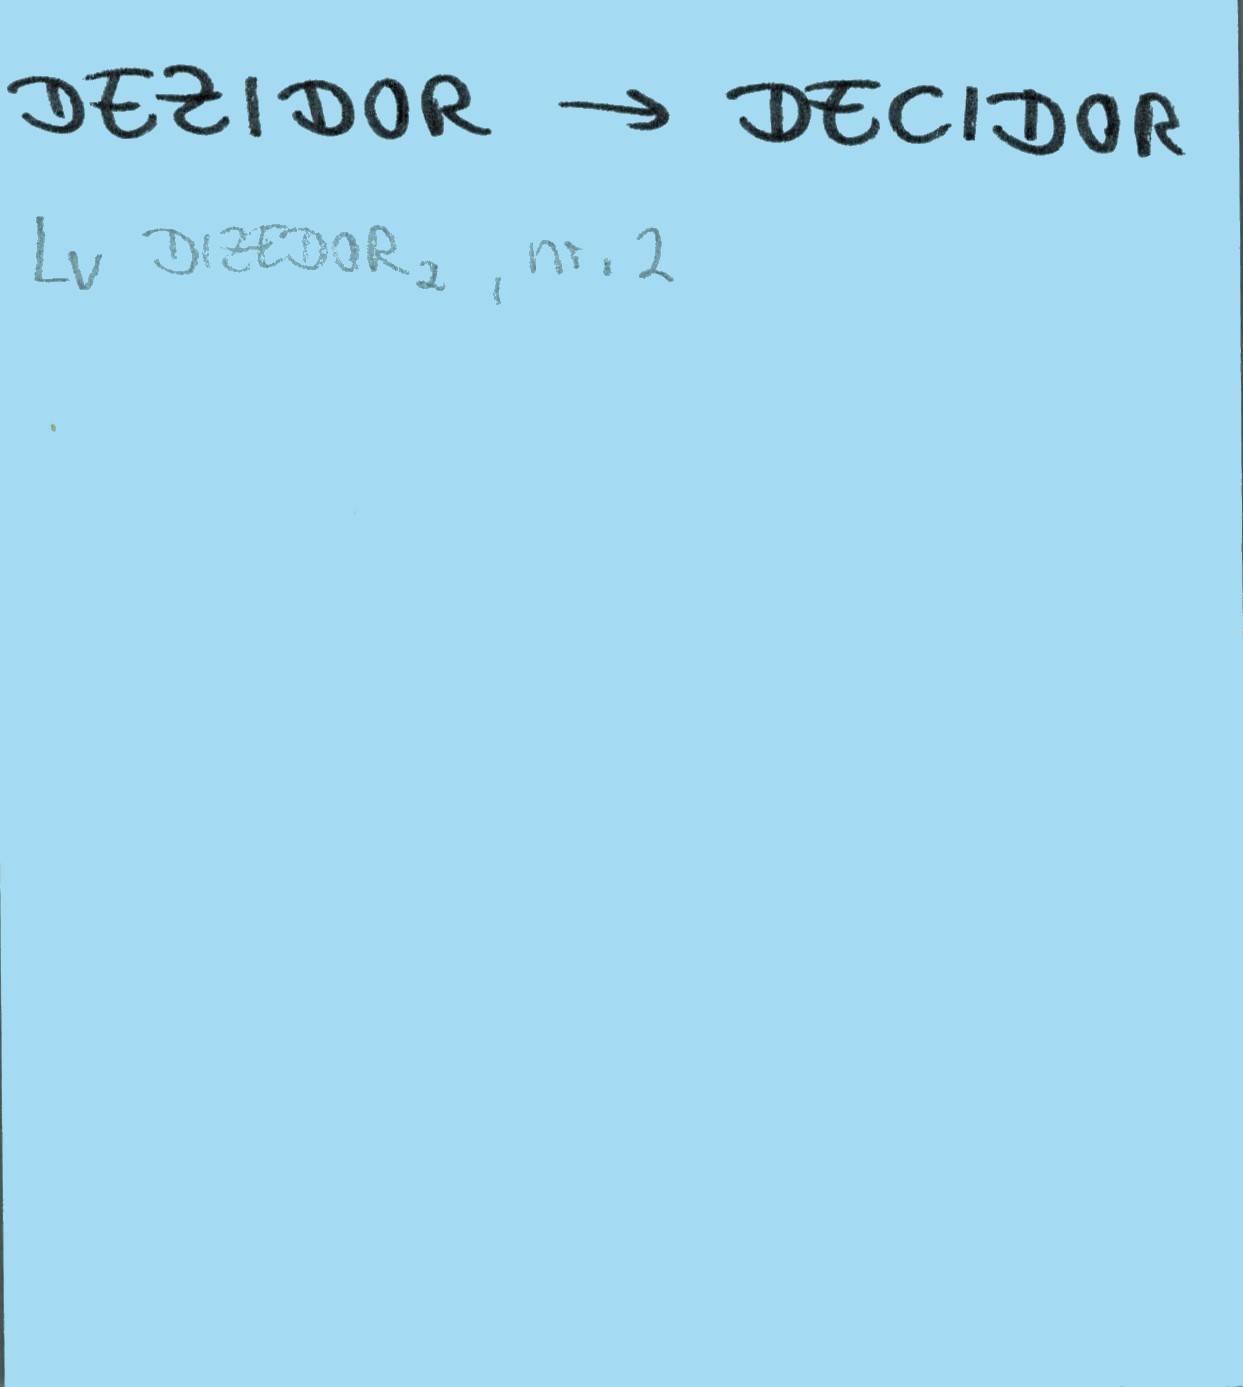 DEZIDOR → DECIDOR
Lv DIZEDOR2, nr. 2